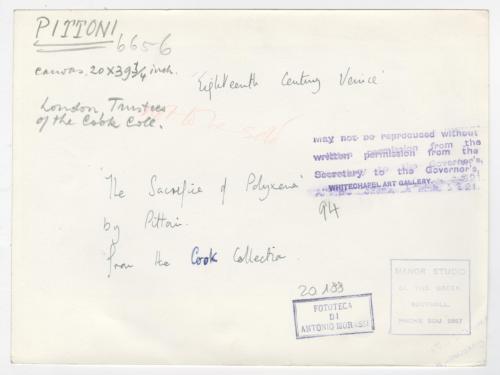 PITTONI
6656
canvas. 20 x 39 3/4 inch.
'Eighteenth Century Venice'
London, Trustees
of the Cook Coll.
May not be reproduced without
written permission from the
Secretary to the Governor's,
WHITECHAPEL ART GALLERY
94
'The Sacrifice of Polyxena'
by Pittoni.
From the Cook Collection
20.133
FOTOTECA
DI
ANTONIO MORASSI
MANOR STUDIO
SOUTHALL
PHONE SOU